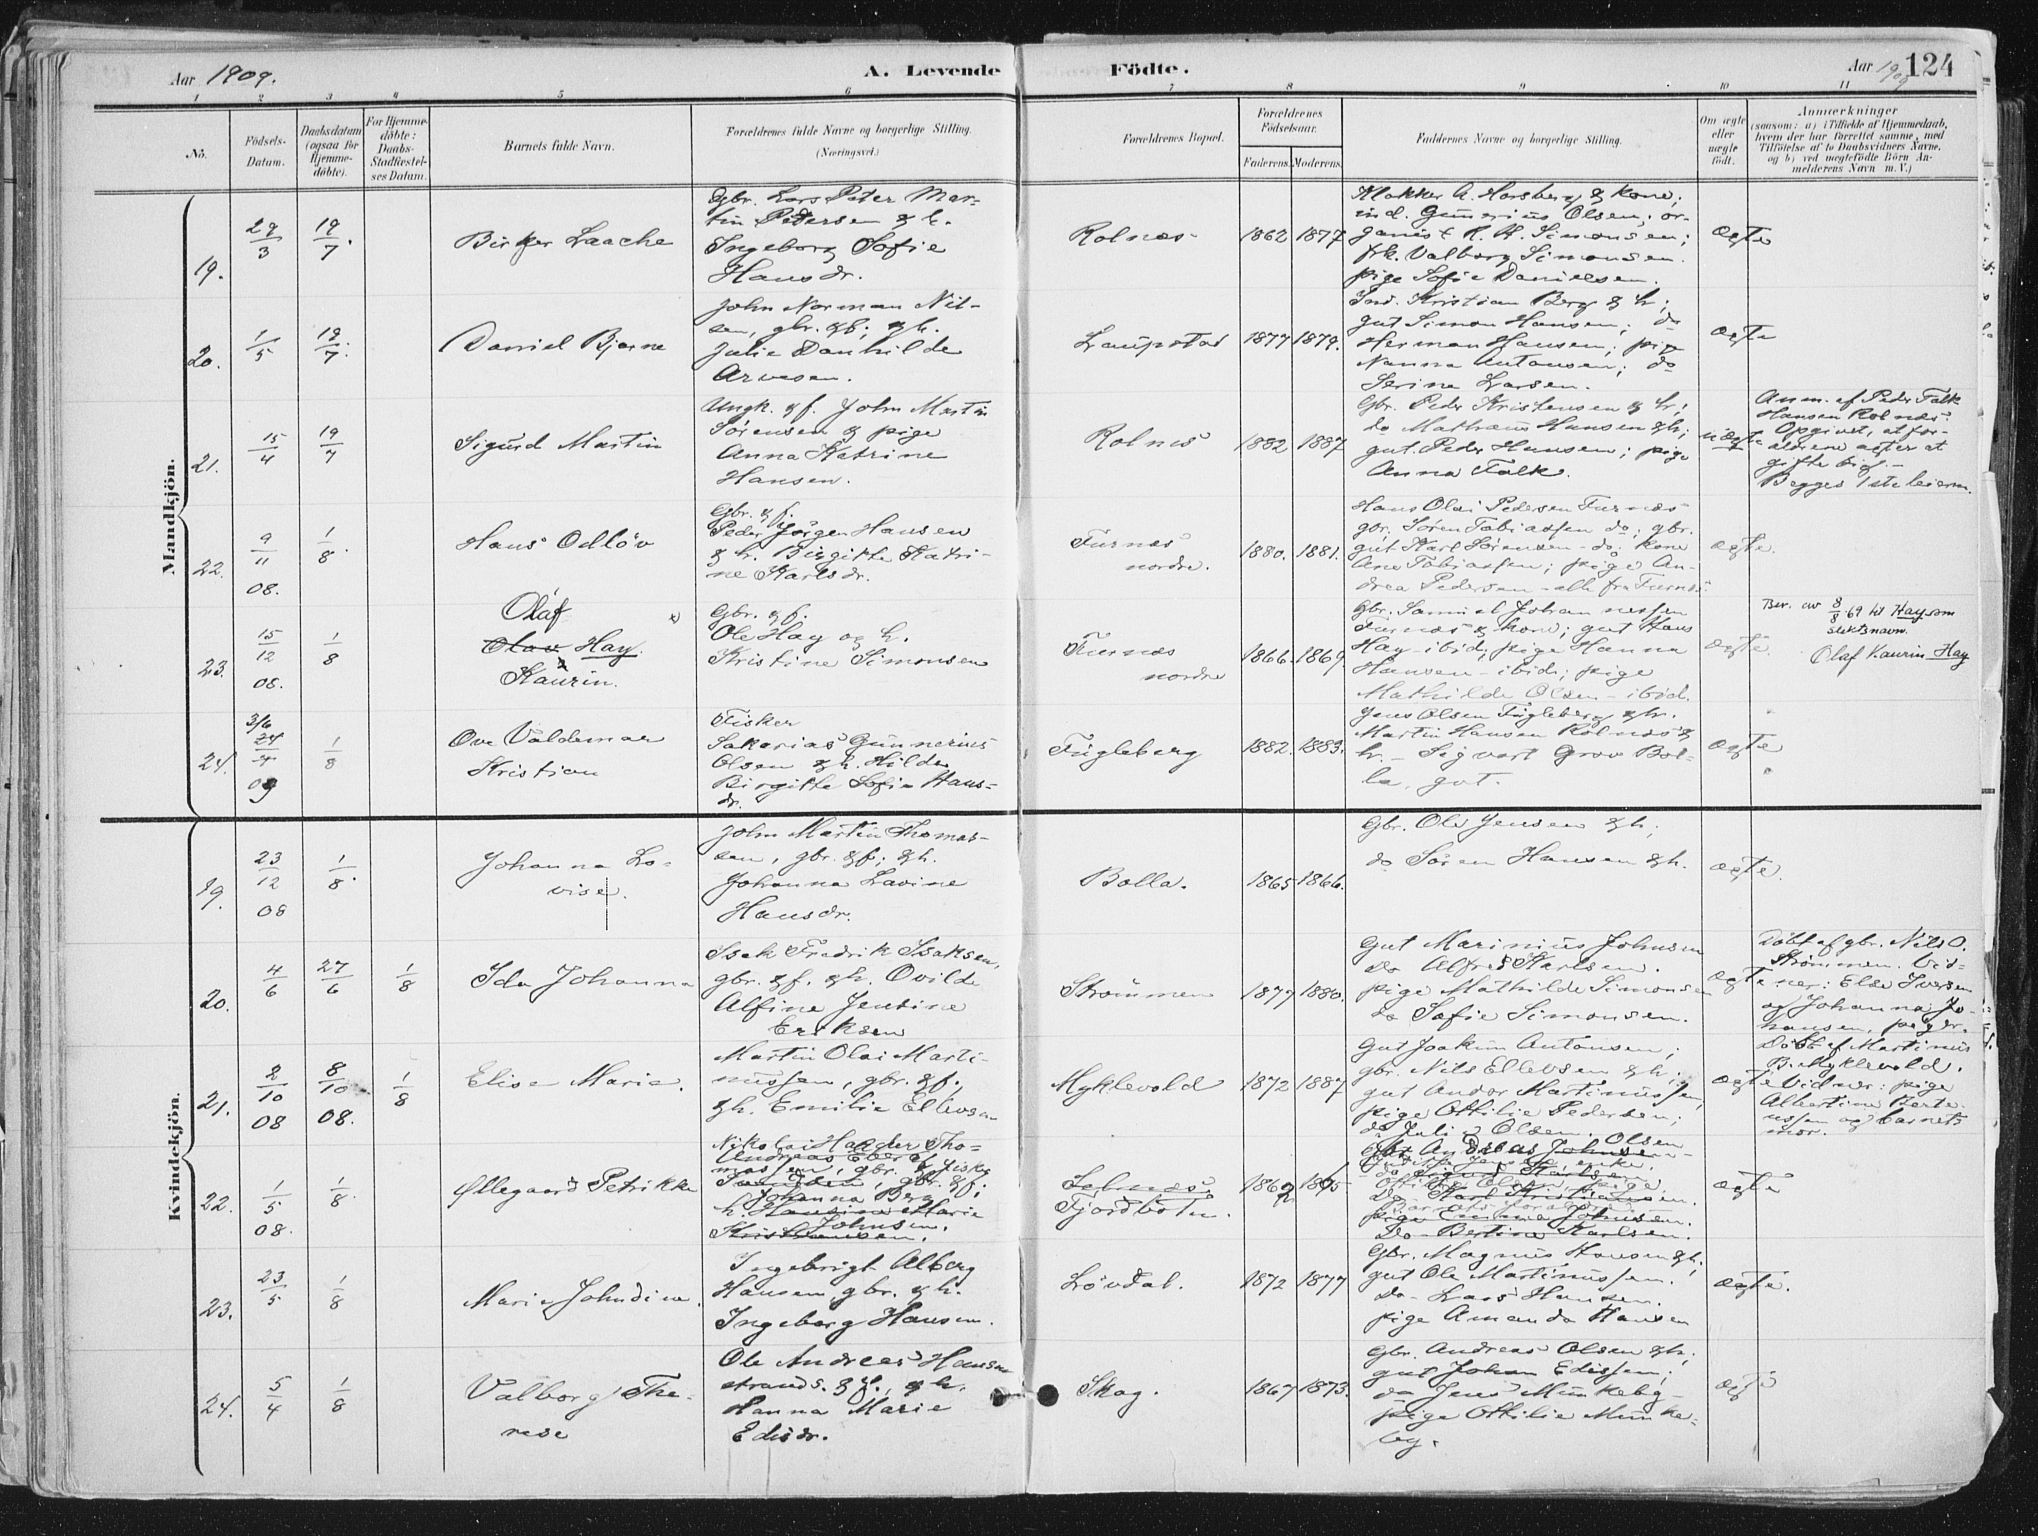 Aar 1909.
A. Levende
Födte.
Aar 1909
124
1 2 3 4 5 6 7 8 9 10 11
No.
Födsels-
Datum.
Daabsdatum
(ogsaa for
Hjemme-
döbte).
For Hjemme-
döbte:
Daabs-
Stadfæstel-
ses Datum.
Barnets fulde Navn.
Forældrenes fulde Navne og borgerlige Stilling.
(Næringsvei.)
Forældrenes Bopæl.
Forældrenes
Födselsaar.
Faderens.
Moderens.
Faddernes Navne og borgerlige Stilling.
Om ægte
eller
uægte
födt.
Anmærkninger
(saasom: a) i Tilfælde af Hjemmedaab,
hvem der har forrettet samme, med
Tilföielse af to Daabsvidners Navne,
og b) ved uægtefödte Börn An-
melderens Navn m. V.)
Mandkjön.
19.
29/3
19/7.
Birger Laache
Gbr. Lars Peter Mar-
tin Pedersen & h.
Ingeborg Sofie
Hansdr.
Rolnæs
1862
1877
Klokker A. Horsberg & kone;
ind. Gunnerius Olsen; or-
ganist R. H. Simonsen;
frk. Valborg Simonsen.
pige Sofie Danielsen.
ægte
20.
1/5
19/7.
Daniel Bjarne
John Norman Nil-
sen, gbr. & f; & h.
Julie Danhilde
Arvesen.
Laupstad
1877
1879.
Ind. Kristian Berg & h;
gut Simon Hansen; do
Herman Hansen; pige
Nanna Antonsen; do
Serine Larsen.
ægte
21.
15/4
19/7
Sigurd Martin
Ungk. & f. John Martin
Sørensen & pige
Anna Katrine
Hansen.
Rolnes
1882
1887
Gbr. Peder Kristensen & h;
do Mathæus Hansen & h;
gut Peder Hansen; pige
Anna Falk.
uægte
Anm. af Peder Falk
Hansen Rolnæs.
Opgivet, at for-
ældrene agter at
gifte sig. –
Begges 1ste leierm.
22.
9/11
08.
1/8.
Hans Odløv
Gbr. & f.
Peder Jørgen Hansen
& h. Birgitte Katri-
ne Karlsdr.
Furnæs
nordre.
1880.
1881.
Hans Olai Pedersen Furnæs
gbr, Søren Tobiassen do; gbr.
gut Karl Sørensen – do; kone
Ane Tobiassen; pige An-
drea Pedersen – alle fra Furnæs.
ægte.
23.
15/12
08.
1/8
Olaf
Olav Hay
Kaurin.
x)
Gbr. & f.
Ole Hay og h.
Kristine Simonsen
Furnæs
nordre
1866.
1869
Gbr. Samuel Johannessen
Furnæs & kone; gut Hans
Hay – ibid; pige Hanna
Hansen – ibid; pige
Mathilde Olsen – ibid.
ægte
Bev. av 8/8-69 til Hay som
slektsnavn.
Olaf Kaurin Hay
24.
3/6
24/4
09
1/8
Ove Valdemar
Kristian
Fisker
Sakarias Gunnerius
Olsen & h. Hilda
Birgitte Sofie Hans-
dr.
Fugleberg
1882.
1883.
Jens Olsen Fugleberg & h.
Martin Hansen Rolnæs &
h. – Sigvart Grov Bol-
la, gut.
ægte
Kvindekjön.
19.
23/12
08
1/8.
Johanna Lo-
vise.
John Martin Thomas-
sen, gbr. & f; & h.
Johanna Lavine
Hansdr.
Bolla.
1865
1866.
Gbr. Ole Jensen & h;
do Søren Hansen & h.
ægte.
20.
4/6
27/6
1/8
Ida Johanna
Isak Fredrik Isaksen,
gbr. & f. & h. Ovilde
Alfine Jentine
Eriksen
Strømmen
1879
1880.
Gut Marinius Johnsen
do Alfred Karlsen.
pige Mathilde Simonsen
do Sofie Simonsen.
ægte
Døbt af gbr. Nils O.
Strømmen. Vid-
ner: Else Iversen
og Johanna Jo-
hansen, piger.
21.
2/10
08
8/10
08.
1/8
Elise Marie.
Martin Olai Marti-
nussen, gbr. & f.
& h. Emilie Ellevsen
Myklevold
1872
1887
Gut Joakim Antonsen;
gbr. Nils Ellevsen & h;
gut Andor Martinussen,
pige Ottilie Pedersen;
do Juli Olsen.
ægte
Døbt af Martinus
B. Myklevold.
Vidner: pige
Albertine Berte-
ussen og barnets
mor.
22.
1/5
08.
1/8.
Ollegaard Petrikke
Nikolai Hagder Tho-
massen, gbr. & fisker
Johanna Berg
h. Hansine Marie
Johnsen.
Kristiansen.
Selnæs.
Fjordbotn.
1862
1865
Olsen
Gbr Andreas Johnsen
do Karl Kristiansen.
pige Emma Johnsen.
do Bertine Karlsen.
ægte
23.
23/5
1/8
Marie Johndine.
Ingebrigt Alberg
Hansen, gbr. & h.
Ingeborg Hansen.
Løvdal.
1872
1877
Gbr. Magnus Hansen & h;
gut Ole Martinussen.
do Lars Hansen.
pige Amanda Hansen
ægte.
24.
5/4
1/8
Valborg The-
rese
Ole Andreas Hansen
strands. & f., & h.
Hanna Marie
Edisdr.
Skog.
1867
1873.
Gbr. Andreas Olsen & h;
gut Johan Edissen;
do Jens Munkeby –
pige Ottilie Munke-
by.
ægte